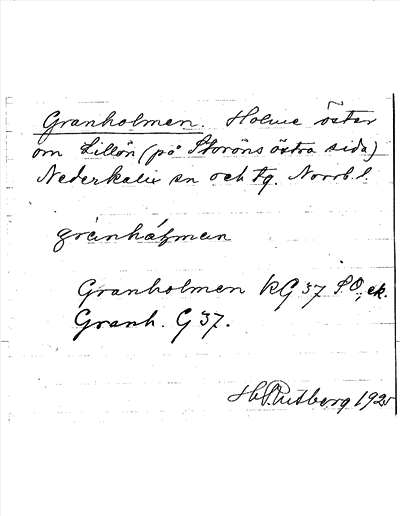 Granholmen. Holme öster
om Lillön (på Storöns östra sida)
Nederkalix sn och tg. Norrb. l.
gránhǻɫmen
Granholmen KG 37 S.O., ek.
Granh. G 37.
H. Rutberg 1925